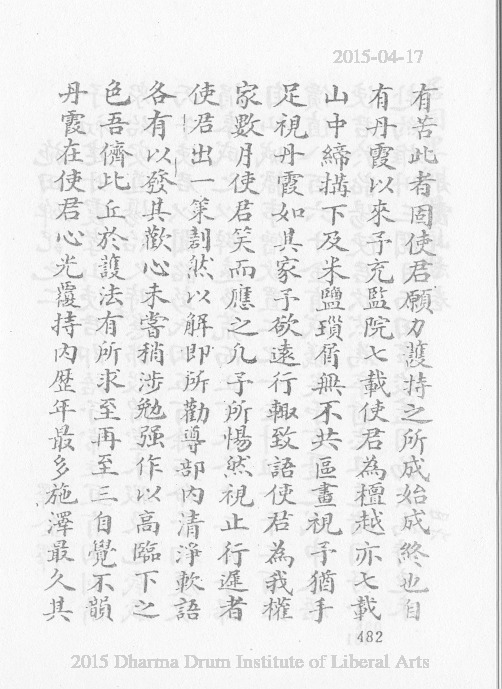 2015-04-17
有苦此者固使君願力護持之所成始成終也自
有丹霞以來予充監院七載使君為檀越亦七載
山中締搆下及米鹽瑣屑無不共區畫視予猶手
足視丹霞如其家予欲遠行輙致語使君為我權
家數月使君笑而應之凢予所惕然視止行遲者
使君出一策劃然以解即所勸導部內清淨軟語
各有以發其歡心未嘗稍涉勉强作以高臨下之
色吾儕比丘於護法有所求至再至三自覺不韻
丹霞在使君心光覆持內歴年最多施澤最久其
482
2015 Dharma Drum Institute of Liberal Arts